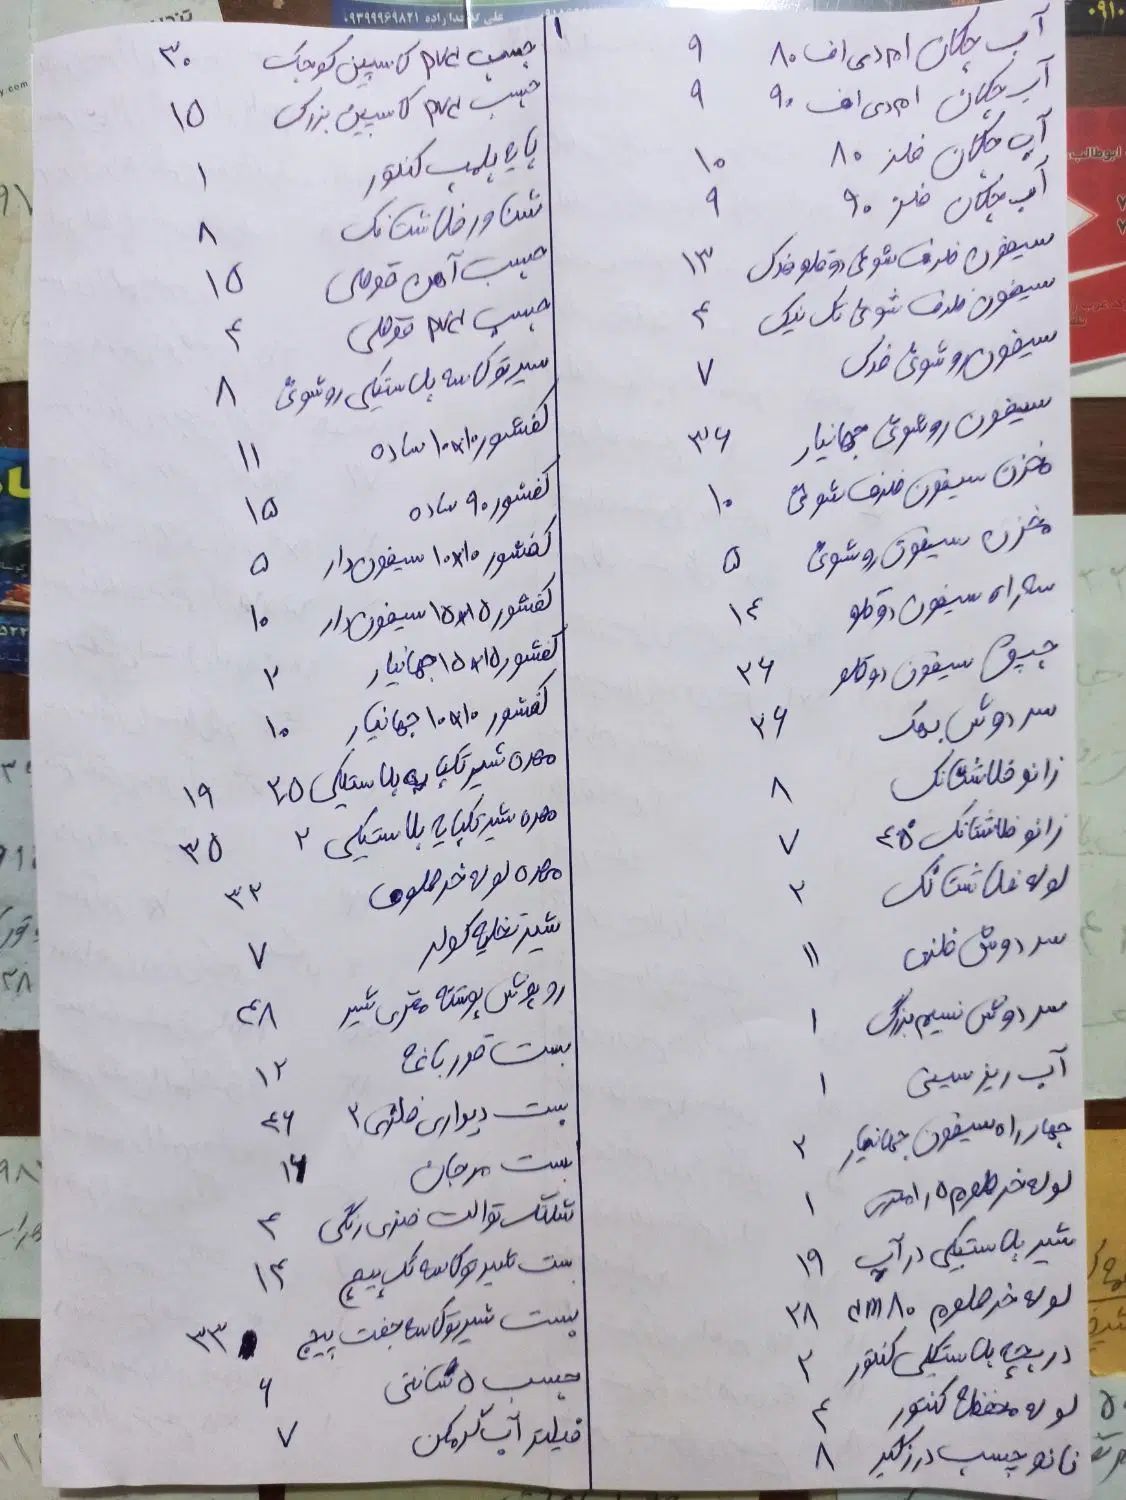 ۱
آب چکان ام دی اف ۸۰ ۹
آب چکان ام دی اف ۹۰ ۹
آب چکان فلز ۸۰ ۱۰
آب چکان فلز ۹۰ ۹
سیفون ظرف شوئی دوقلو فدک ۱۳
سیفون ظرف شوئی تک نیک ۴
سیفون روشوئی فدک ۷
سیفون روشوئی جهانیار ۳۶
مخزن سیفون ظرف شوئی ۱۰
مخزن سیفون روشوئی ۵
سه راه سیفون دوقلو ۱۴
چپق سیفون دوقلو ۲۶
سر دوش بمک ۲۶
زانو فلاشتانک ۸
زانو فلاشتانک ۴۵° ۷
لوله فلاشتانک ۲
سر دوش فلزی ۱۱
سر دوش نسیم بزرگ ۱
آب ریز سینی ۱
چهار راه سیفون جهانیار ۲
لوله خرطوم ۱٫۵ متری ۱
شیر پلاستیکی در آب ۱۹
لوله خرطوم ۸۰ cm ۲۸
دریچه پلاستیکی کنتور ۲
لوله محفظه کنتور ۴
نانو چسب درزگیر ۸
چسب pvc کاسپین کوچک ۳۰
چسب pvc کاسپین بزرگ ۱۵
پایه پلمپ کنتور ۱
شناور فلاشتانک ۸
چسب آهن قوطی ۱۵
چسب pvc قوطی ۴
سیر توکاسه پلاستیکی روشوئی ۸
کفشور ۱۰x۱۰ ساده ۱۱
کفشور ۹۰ ساده ۱۵
کفشور ۱۰x۱۰ سیفون دار ۵
کفشور ۱۵x۱۵ سیفون دار ۱۰
کفشور ۱۵x۱۵ جهانیار ۲
کفشور ۱۰x۱۰ جهانیار ۱۰
مهره شیر تکپایه پلاستیکی ۲٫۵ ۱۹
مهره شیر تکپایه پلاستیکی ۲ ۳۵
مهره لوله خرطومی ۳۲
شیر تخلیه کولر ۷
روپوش پوسته مغزی شیر ۴۸
بست قورباغه ۱۲
بست دیواری فلزی ۲ ۴۶
بست مرجان ۱۶
شلنگ توالت فنری رنگی ۴
بست شیر توکاسه تک پیچ ۱۴
بست شیر توکاسه جفت پیچ ۳۳
چسب ۵ سانتی ۶
فیلتر آب گرمکن ۷